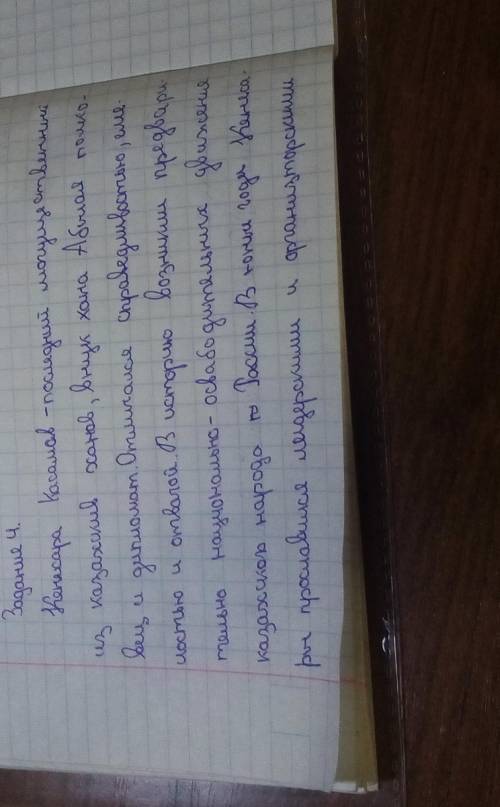 Задание 4.
Кенесара Касымов - последний могущественный
из казахских ханов, внук хана Абылая полко-
вец и дипломат. Отличался справедливостью, сме-
лостью и отвагой. В историю возникши предвари-
тельно национально-освабодительных движение
казахского народа в России. В юные годы Кенеса-
ры прославился лидерскими и организаторскими